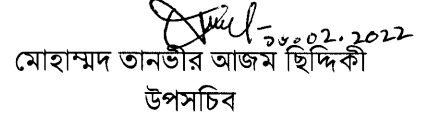 .02.2022
মোহাম্মদ তানভীর আজম ছিদ্দিকী
উপসচিব